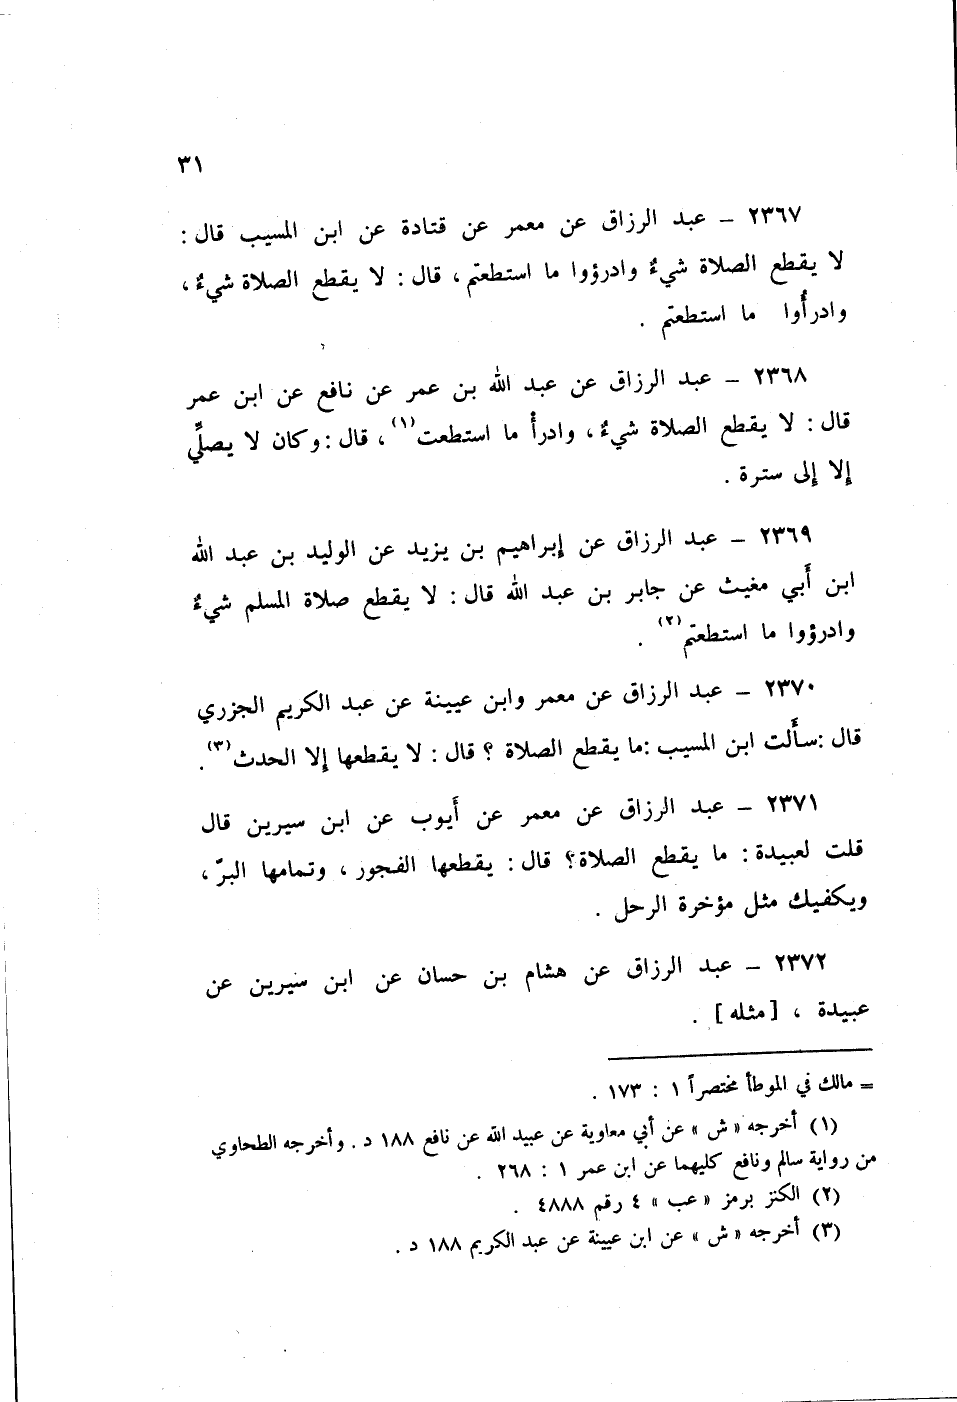 ٣١
٢٣٦٧ – عبد الرزاق عن معمر عن قتادة عن ابن المسيب قال :
لا يقطع الصلاة شيءٌ وادرؤوا ما استطعتم ، قال : لا يقطع الصلاة شيءٌ ،
وادرأُوا ما استطعتم .
٢٣٦٨ – عبد الرزاق عن عبد الله بن عمر عن نافع عن ابن عمر
قال : لا يقطع الصلاة شيءٌ ، وادرأْ ما استطعت(١) ، قال : وكان لا يصلِّي
إلا إلى سترة .
٢٣٦٩ – عبد الرزاق عن إبراهيم بن يزيد عن الوليد بن عبد الله
ابن أبي مغيث عن جابر بن عبد الله قال : لا يقطع صلاة المسلم شيءٌ
وادرؤوا ما استطعتم(٢) .
٢٣٧٠ – عبد الرزاق عن معمر وابن عيينة عن عبد الكريم الجزري
قال : سألت ابن المسيب : ما يقطع الصلاة ؟ قال : لا يقطعها إلا الحدث(٣) .
٢٣٧١ – عبد الرزاق عن معمر عن أيوب عن ابن سيرين قال
قلت لعبيدة : ما يقطع الصلاة ؟ قال : يقطعها الفجور ، وتمامها البرّ ،
ويكفيك مثل مؤخرة الرحل .
٢٣٧٢ – عبد الرزاق عن هشام بن حسان عن ابن سيرين عن
عبيدة ، [مثله] .
= مالك في الموطأ مختصراً ١ : ١٧٣ .
(١) أخرجه « ش » عن أبي معاوية عن عبيد الله عن نافع ١٨٨ د . وأخرجه الطحاوي
من رواية سالم ونافع كليهما عن ابن عمر ١ : ٢٦٨ .
(٢) الكنز برمز « عب » ٤ رقم ٤٨٨٨ .
(٣) أخرجه « ش » عن ابن عيينة عن عبد الكريم ١٨٨ د .